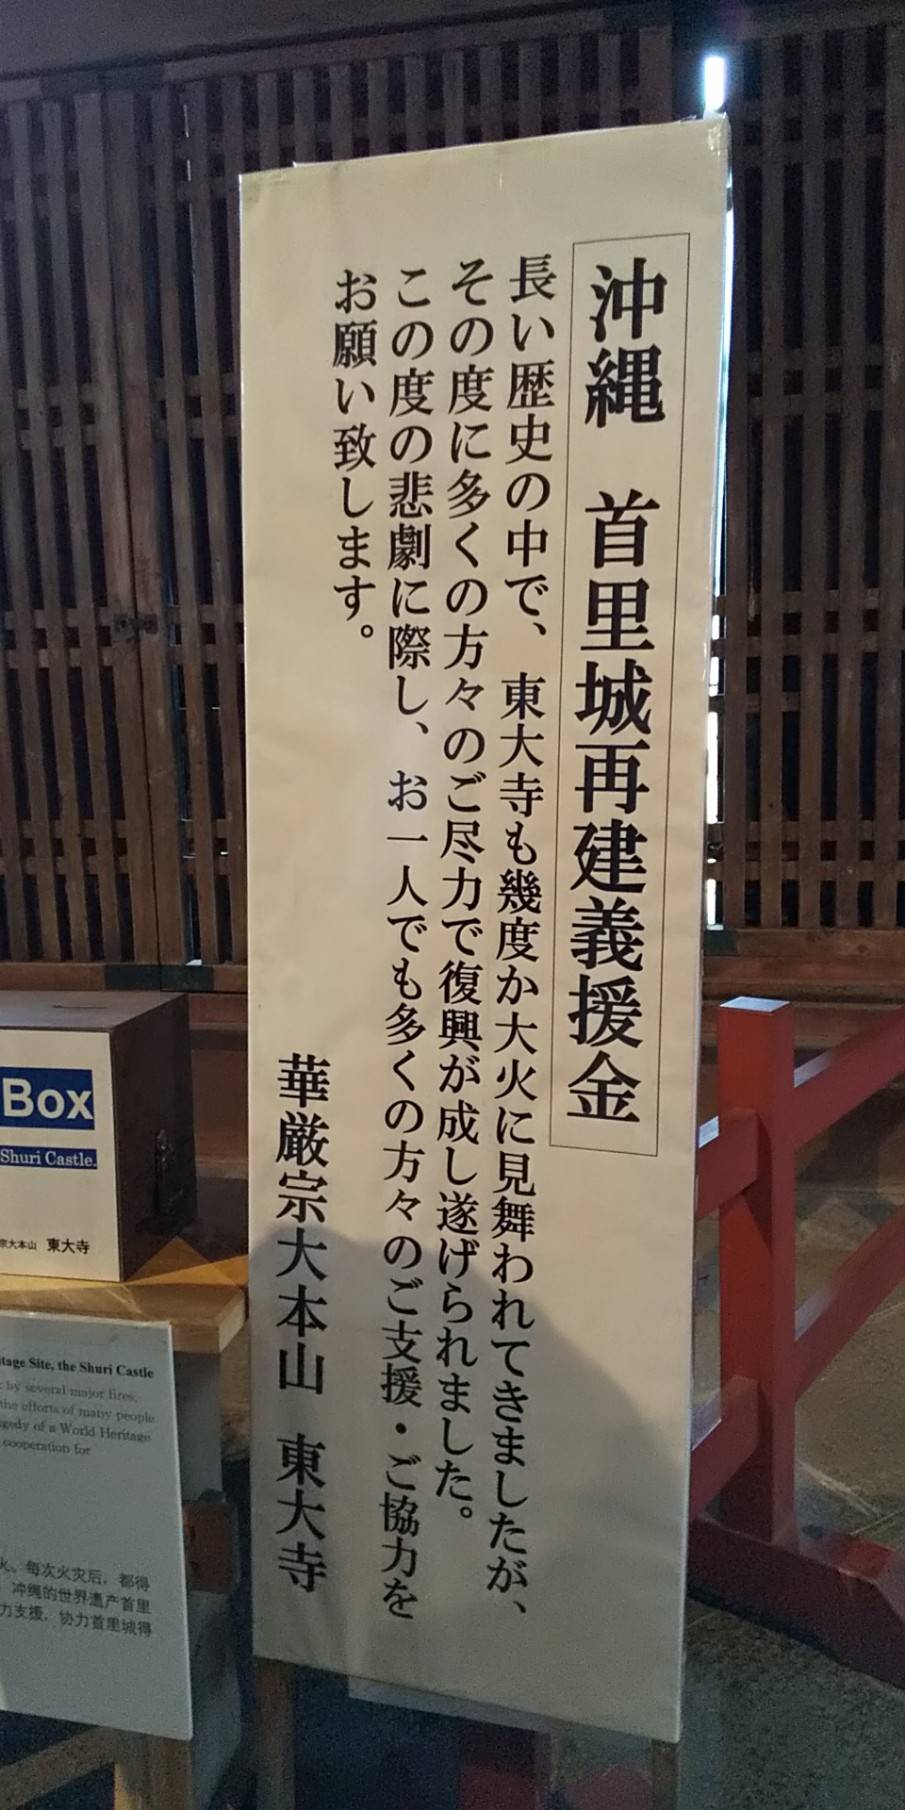 沖縄 首里城再建義援金
長い歴史の中で、東大寺も幾度か大火に見舞われてきましたが、
その度に多くの方々のご尽力で復興が成し遂げられました。
この度の悲劇に際し、お一人でも多くの方々のご支援・ご協力を
お願い致します。
華厳宗大本山 東大寺
Box
Shuri Castle.
宗大本山 東大寺
tage Site, the Shuri Castle
by several major fires.
the efforts of many people
gedy of a World Heritage
cooperation for
火。每次火灾后，都得
冲绳的世界遗产首里
力支援，协力首里城得